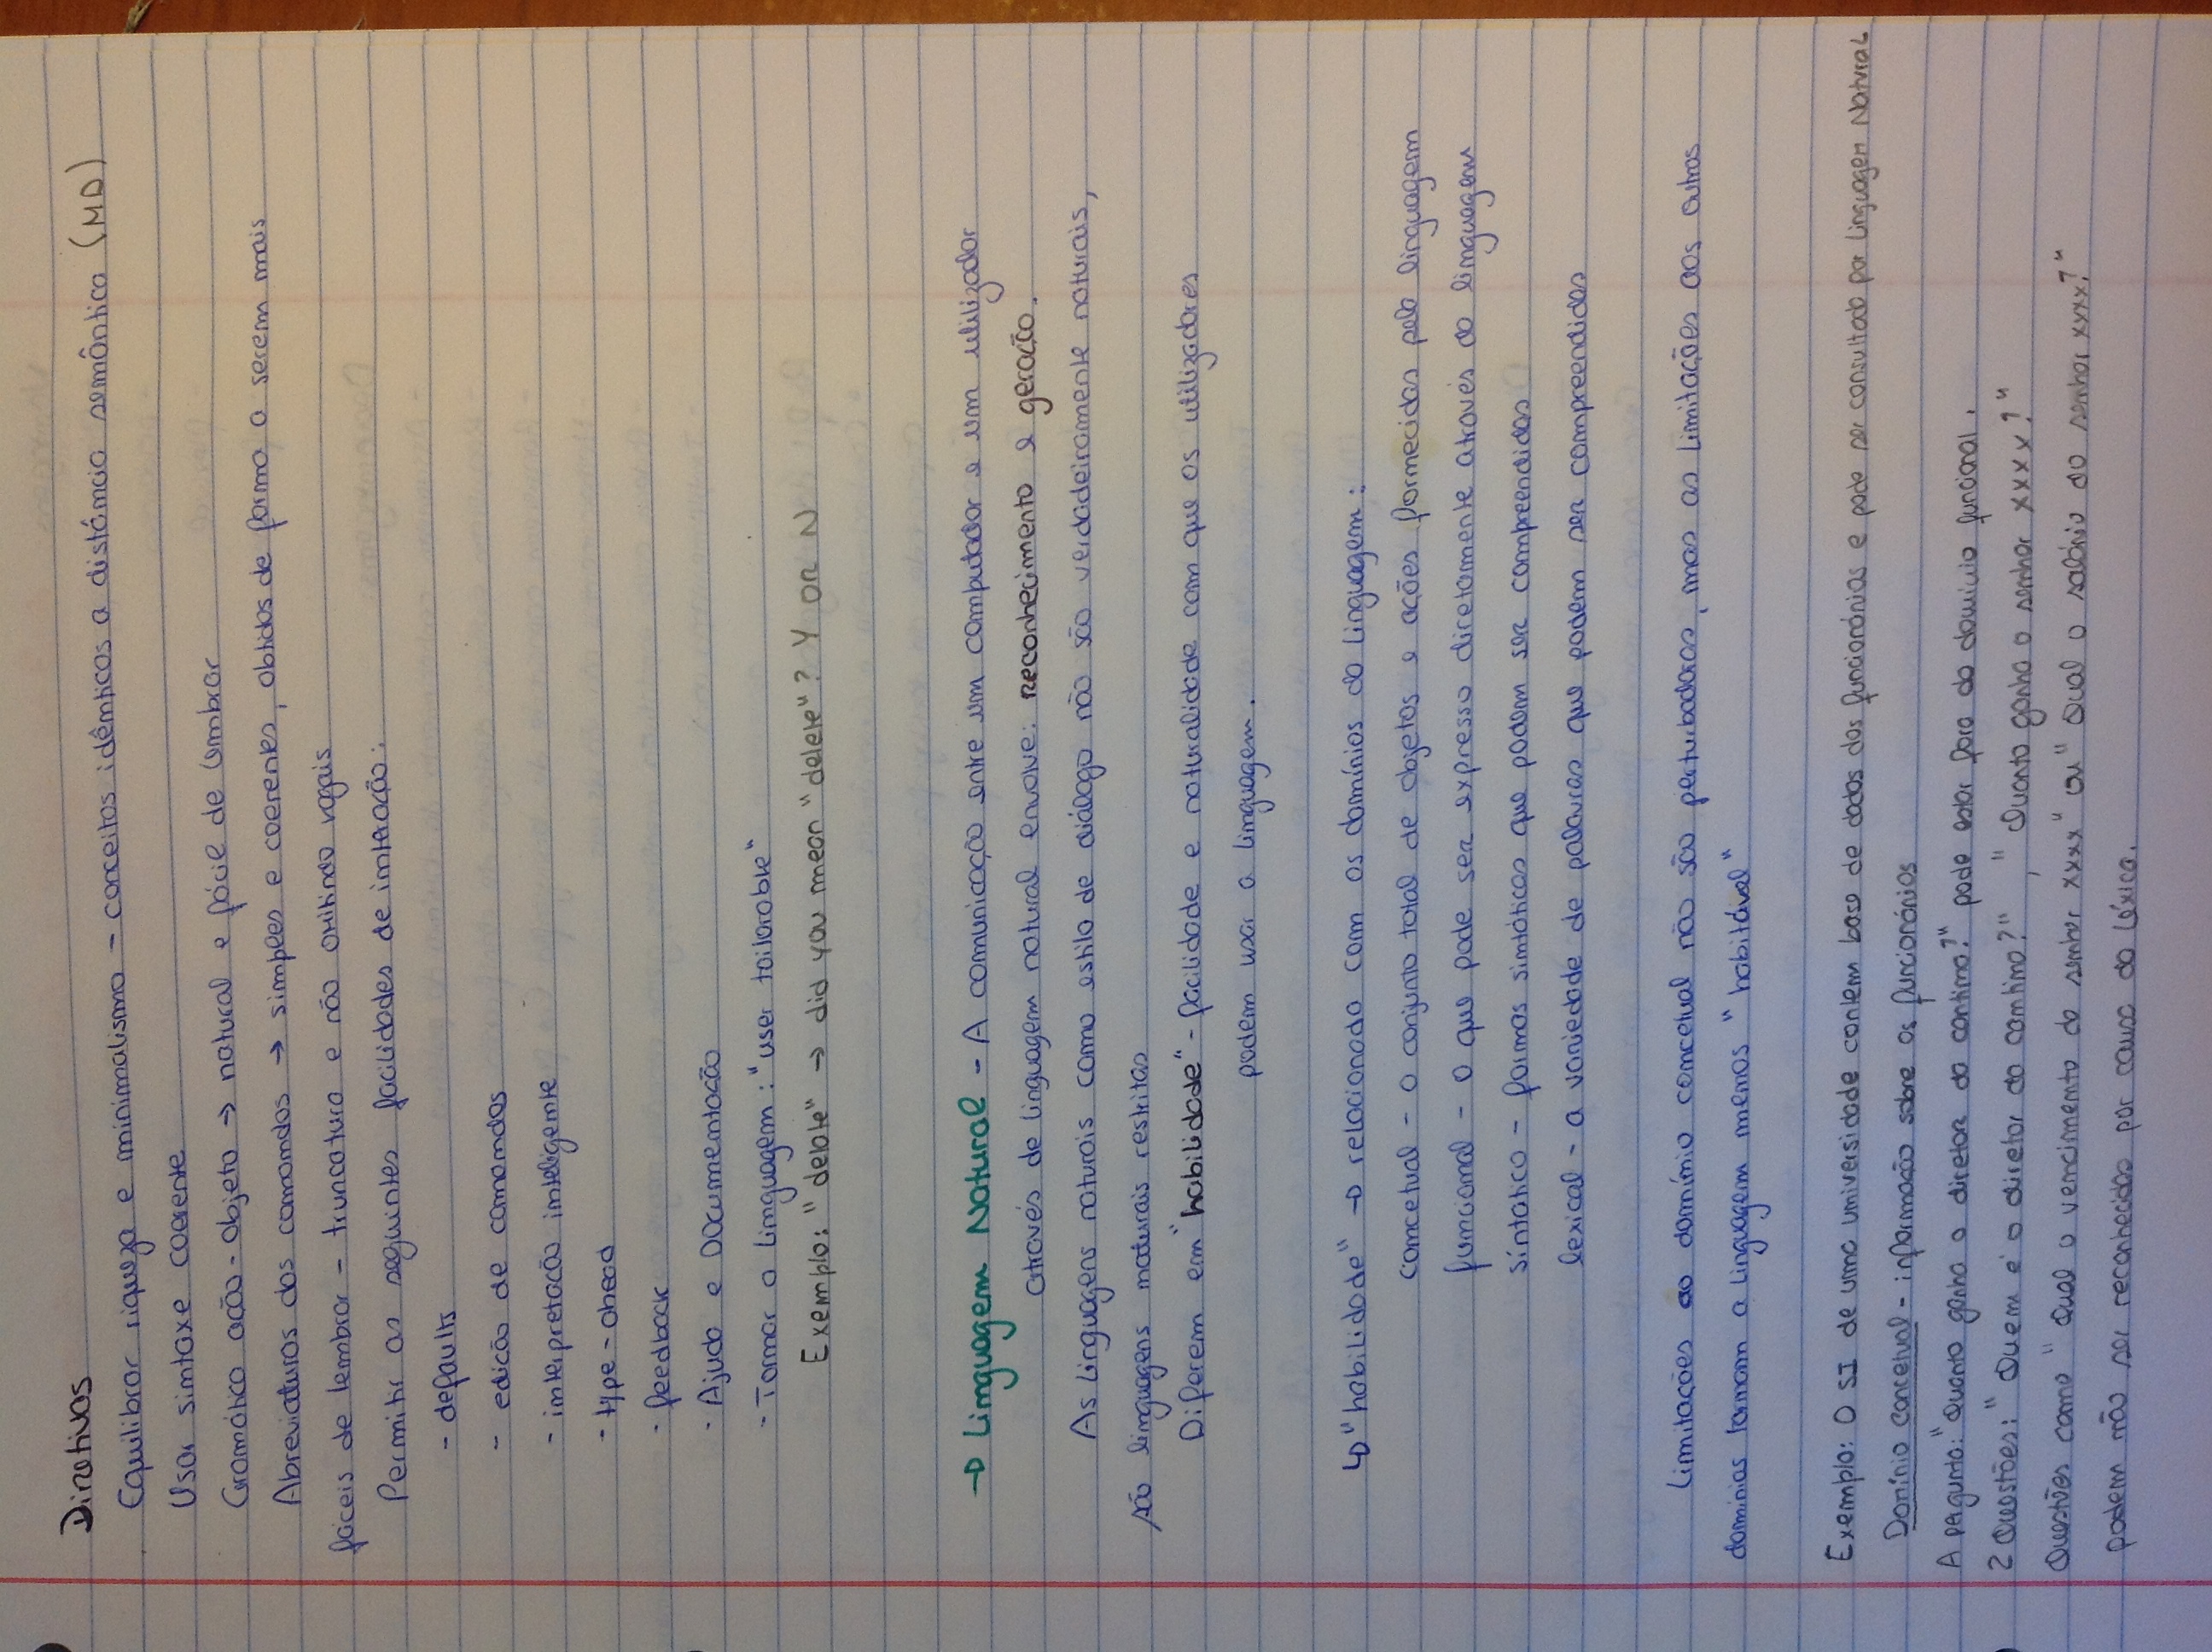 Diretivas
Equilibrar riqueza e minimalismo - conceitos idênticos a distância semântica (MD)
Usar sintaxe coerente
Gramática ação-objeto → natural e fácil de lembrar
Abreviaturas dos comandos → simples e coerentes, obtidos de forma a serem mais
fáceis de lembrar - truncatura e não omitindo vogais
Permitir as seguintes facilidades de interação:
- defaults
- edição de comandos
- interpretação inteligente
- type-ahead
- feedback
- Ajuda e Documentação
- Tornar a linguagem: "user tailorable"
Exemplo: "delate" → did you mean "delete"? Y OR N
→ Linguagem Natural - A comunicação entre um computador e um utilizador
através de linguagem natural envolve: Reconhecimento e geração.
As linguagens naturais como estilo de diálogo não são verdadeiramente naturais,
são linguagens naturais restritas
Diferem em "habilidade" - facilidade e naturalidade com que os utilizadores
podem usar a linguagem.
↳ "habilidade" → relacionada com os domínios da linguagem:
concetual - o conjunto total de objetos e ações fornecidas pela linguagem
funcional - o que pode ser expresso diretamente através da linguagem
sintatico - formas sintáticas que podem ser compreendidas
lexical - a variedade de palavras que podem ser compreendidas
Limitações ao domínio concetual não são perturbadoras, mas as limitações aos outros
domínios tornam a linguagem menos "habitável"
Exemplo: O SI de uma universidade contem base de dados dos funcionários e pode ser consultado por Linguagem Natural
Domínio concetual - informação sobre os funcionários
A pergunta: "Quanto ganha o diretor da cantina?" pode estar fora do domínio funcional.
2 Questões: "Quem é o diretor da cantina?", "Quanto ganha o senhor xxxx?"
Questões como "Qual o vencimento do senhor xxxx" ou "Qual o salário do senhor xxxx?"
podem não ser reconhecidas por causa do léxico.